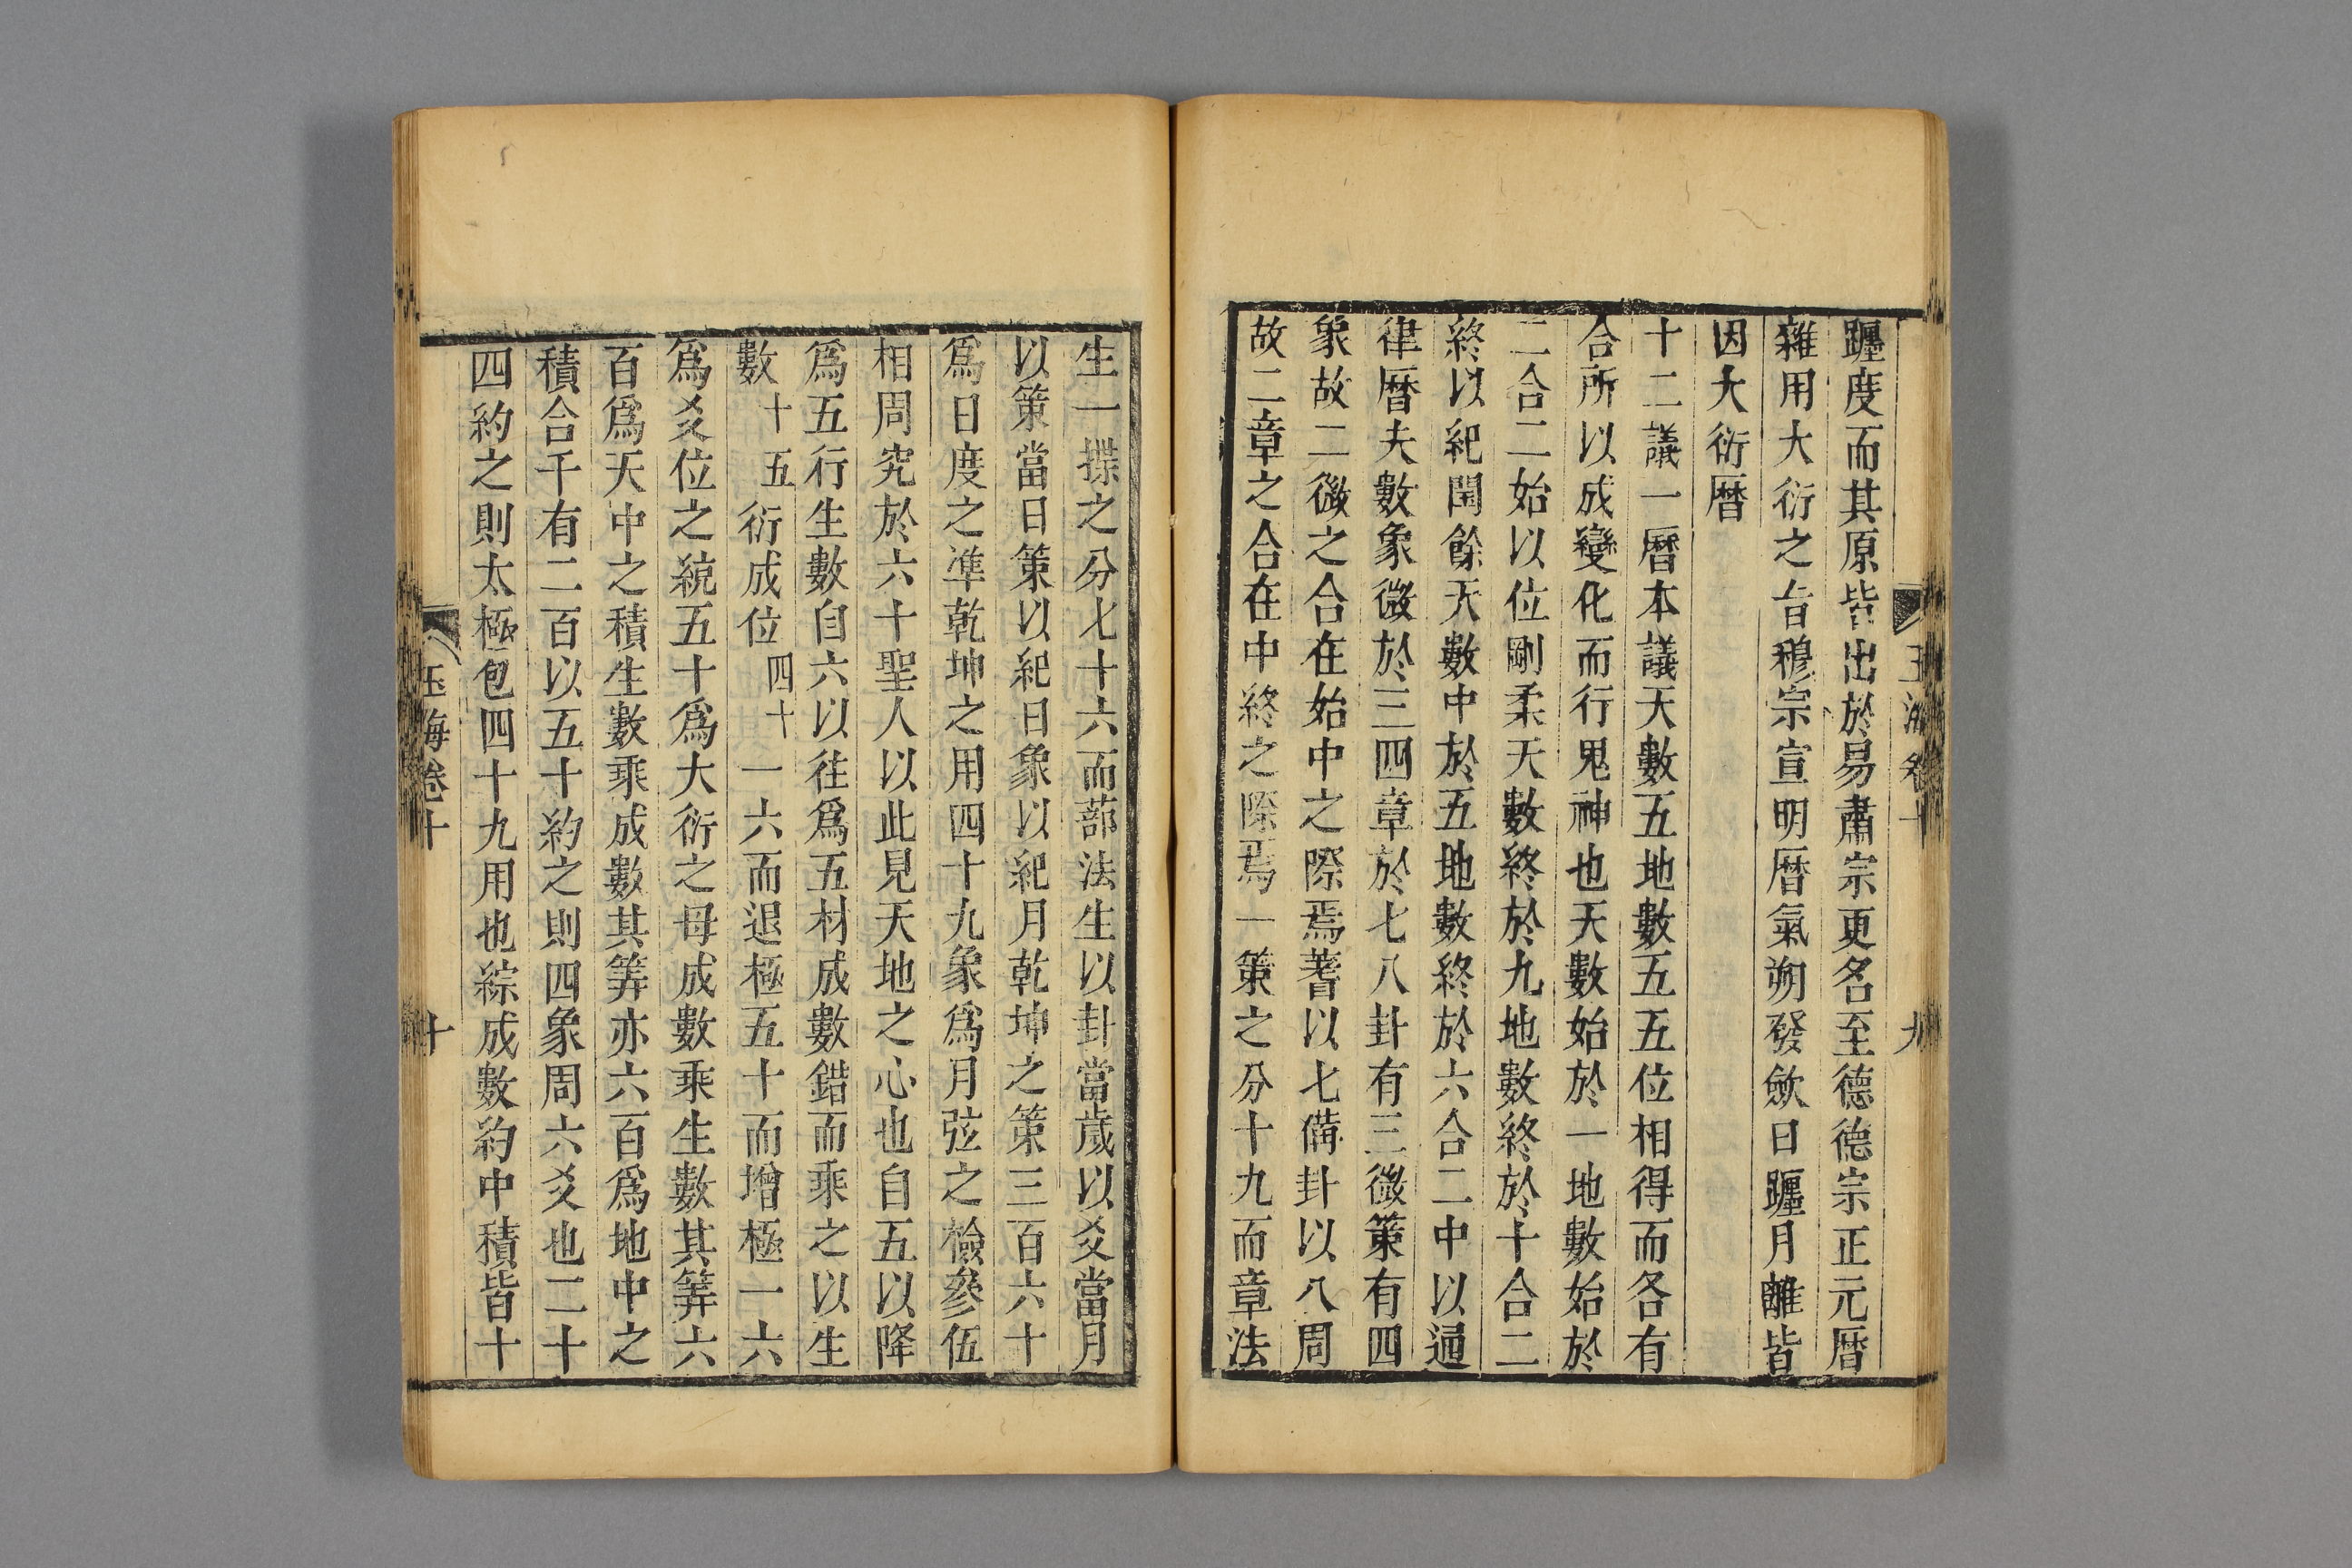 玉海卷十
九
躔度而其原皆出於易肅宗更名至德德宗正元曆
雜用大衍之旨穆宗宣明曆氣朔發歛日躔月離皆
因大衍曆
十二議一曆本議天數五地數五五位相得而各有
合所以成變化而行鬼神也天數始於一地數始於
二合二始以位剛柔天數終於九地數終於十合二
終以紀閏餘天數中於五地數終於六合二中以通
律曆夫數象微於三四章於七八卦有三微策有四
象故二微之合在始中之際焉蓍以七備卦以八周
故二章之合在中終之際焉一策之分十九而章法
生一揲之分七十六而蔀法生以卦當歲以爻當月
以策當日策以紀日象以紀月乾坤之策三百六十
爲日度之準乾坤之用四十九象爲月弦之檢參伍
相周究於六十聖人以此見天地之心也自五以降
爲五行生數自六以往爲五材成數錯而乘之以生
數十五衍成位四十一六而退極五十而增極一六
爲爻位之統五十爲大衍之母成數乘生數其筭六
百爲天中之積生數乘成數其筭亦六百爲地中之
積合千有二百以五十約之則四象周六爻也二十
四約之則太極包四十九用也綜成數約中積皆十
玉海卷十
十